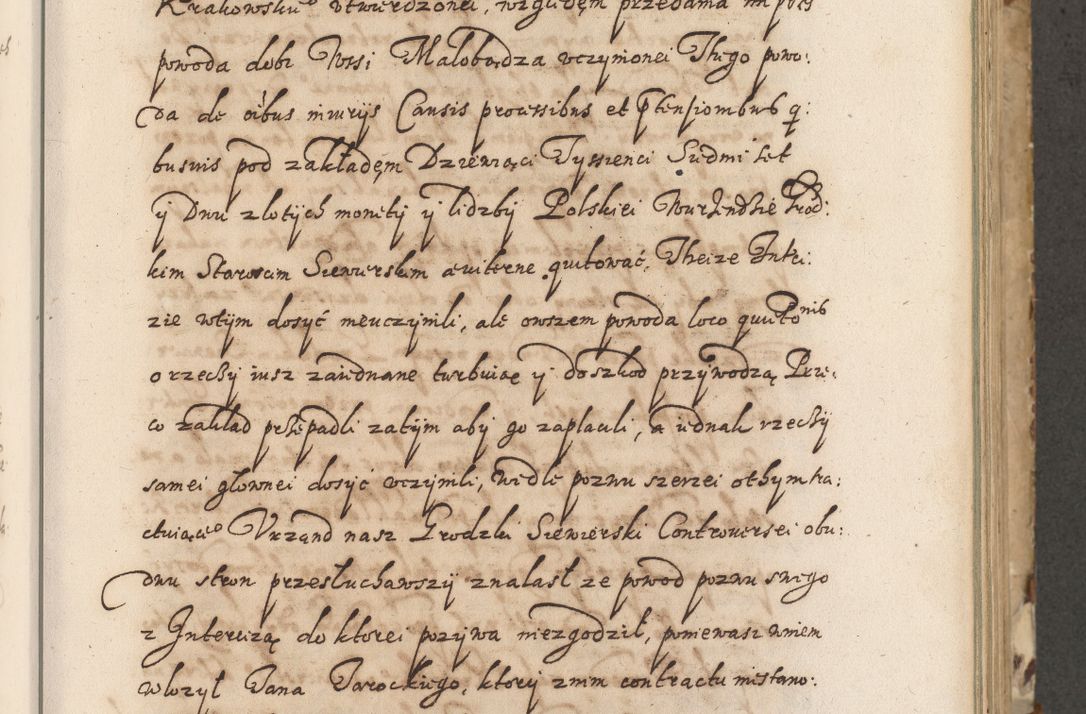 Krakowsku° vtwierdzonei, wzgledęm przedama
powoda dobr Wsi Malobądza vczymonei Thego powo:
da de oibus iniurijs Causis processibus et ptensionibus q:
busuis pod zakładęm Dziewiąci Tyssienci Siedmi set
ÿ Dwu zlotych monety ÿ lidzbÿ Polskiei Wurzędzie Grod:
kim Starosem Siewierskim æuiterne quitować, Theize Inter:
zie wtÿm dosÿć nieuczynili, ale owszem powoda loco quittonis
o rzechÿ iusz zaiednane turbuiąc ÿ doszkod przÿwodzą Prze:
co zaklad przepadli zatÿm abÿ go zaplacili, a iednak rzechÿ
samei głownei dosÿć vczynili, wedle pozwu szerzei othym tra:
ctuiące° Vrząnd nasz Grodzki Siewierski Controuersei obu:
dwu stron przesłuchawszÿ znalasł ze powod pozwu swego
z Intercizą do ktorei pozÿwa niezgodził, poniewasz wniem
włozył Jana Jarockiego, ktorÿ znim contractu niestano: